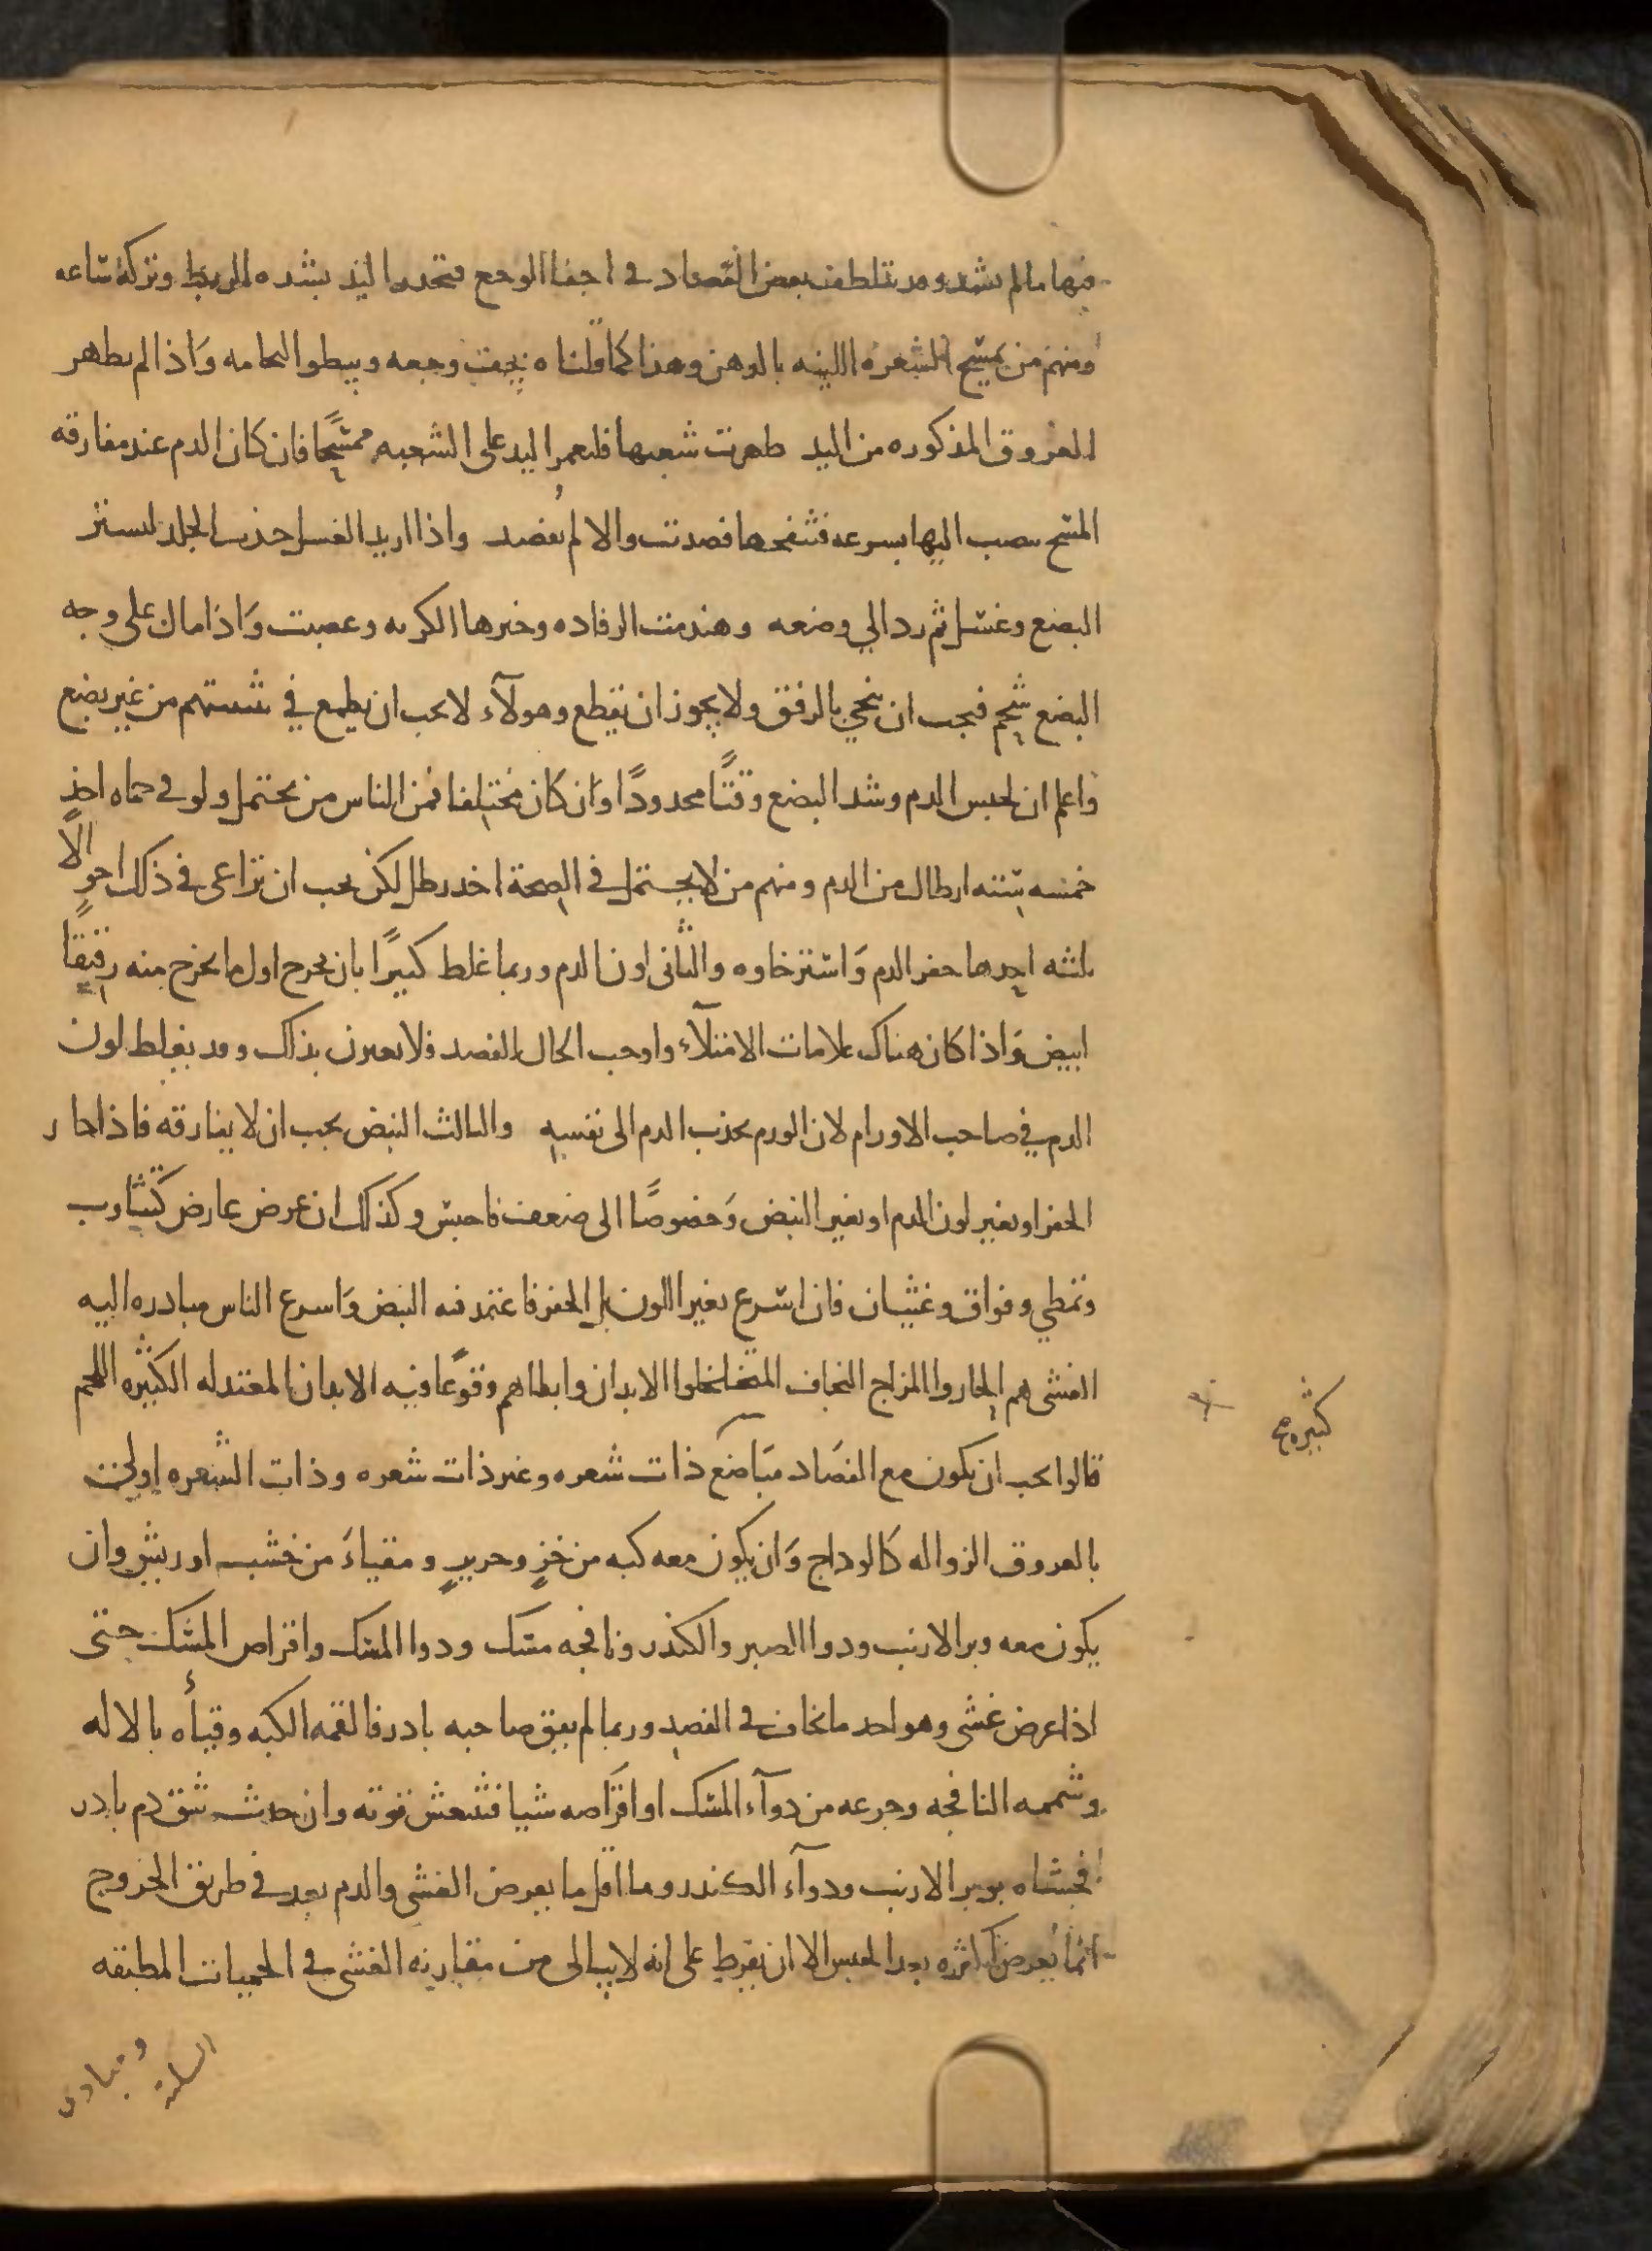 فيها ما لم يشد وقد يتلطف بعض الفصاد في اخفا الوجع فيخدر اليد بشده الربط وتركه ساعه
ومنهم من يمسح الشعره اللينه بالدهن وهذا كما قلناه يخف وجعه ويبطو التحامه وَاذا لم يظهر
العروق المذكوره من اليد ظهرت شعبها فليعمر اليد على الشعبه ممسِّحًا فان كان الدم عند مفارقه
المسح ينصب اليها بسرعه فتنفخها فصدت والا لم يُفصد واذا اريد الغسل جذب الجلد ليستر
البضع وغسل ثم رد الي وضعه وهندمت الرفاده وخيرها الكريه وعصبت وَاذا مال على وجه
البضع شحم فيجب ان ينحي بالرفق ولا يجوز ان يقطع وهولآء لا يجب ان يطمع في تثنيتهم من غير بضع
واعلم ان لحبس الدم وشد البضع وقتًا محدودًا وَان كان مختلفا فمن الناس من يحتمل ولو في حماه اخذ
خمسه ستته ارطال من الدم ومنهم من لا يحتمل في الصحة اخد رطل لكن يجب ان تراعى في ذلك احوالًا
ثلثه احدها حفز الدم وَاسترخاوه والثانى لون الدم وربما غلط كبيرًا بان يخرج اول ما يخرج منه رقيقًا
ابيض وَاذا كان هناك علامات الامتلآء واوجب الحال الفصد فلا يغترن بذلك وقد يغلط لون
الدم في صاحب الاورام لان الورم يجذب الدم الى نفسه والثالث النبض يجب ان لا يفارقه فاذا خار
الحفز او تغير لون الدم او تغير النبض وَخصوصًا الى ضعف فاحبس وكذلك ان عرض عارض كتثاوب
وتمطي وفواق وغثيان فان اسرع تغير اللون بل الحفز فاعتمد فيه النبض وَاسرع الناس مبادره اليه
الغشى هم الحاروا المزاج النحاف المتخلخلوا الابدان وابطاهم وقوعًا فيه الابدان المعتدله الكثيره اللحم
كثيره ع
قالوا يجب ان يكون مع الفصَاد مبَاضع ذات شعره وغير ذات شعره وذات الشعره اولى
بالعروق الزواله كالوداج وَان يكون معه كبه من خزٍ وحريرٍ ومقياءَ من خشب او ريش وان
يكون معه وبر الارنب ودوا الصبر والكندر ونافجه مسك ودوا المسك واقراص المسك حتى
اذا عرض غشى وهو احد ما يخاف في الفصد وربما لم يفق صاحبه بادر فالقمه الكبه وقيأه بالاله
وشممه النافجه وجرعه من دوآء المسك او اقرَاصه شيا فتنعش قوته وان حدث بثق دم بادر
فحشاه بوبر الارنب ودوآء الكندر وما اقل ما يعرض الغشى والدم بعد في طريق الخروج
انما يعرض اكثره بعد الحبس الا ان يفرط على انه لا يبالى من مقاربه الغشى في الحميات المطبقه
ومبادى
السكتة